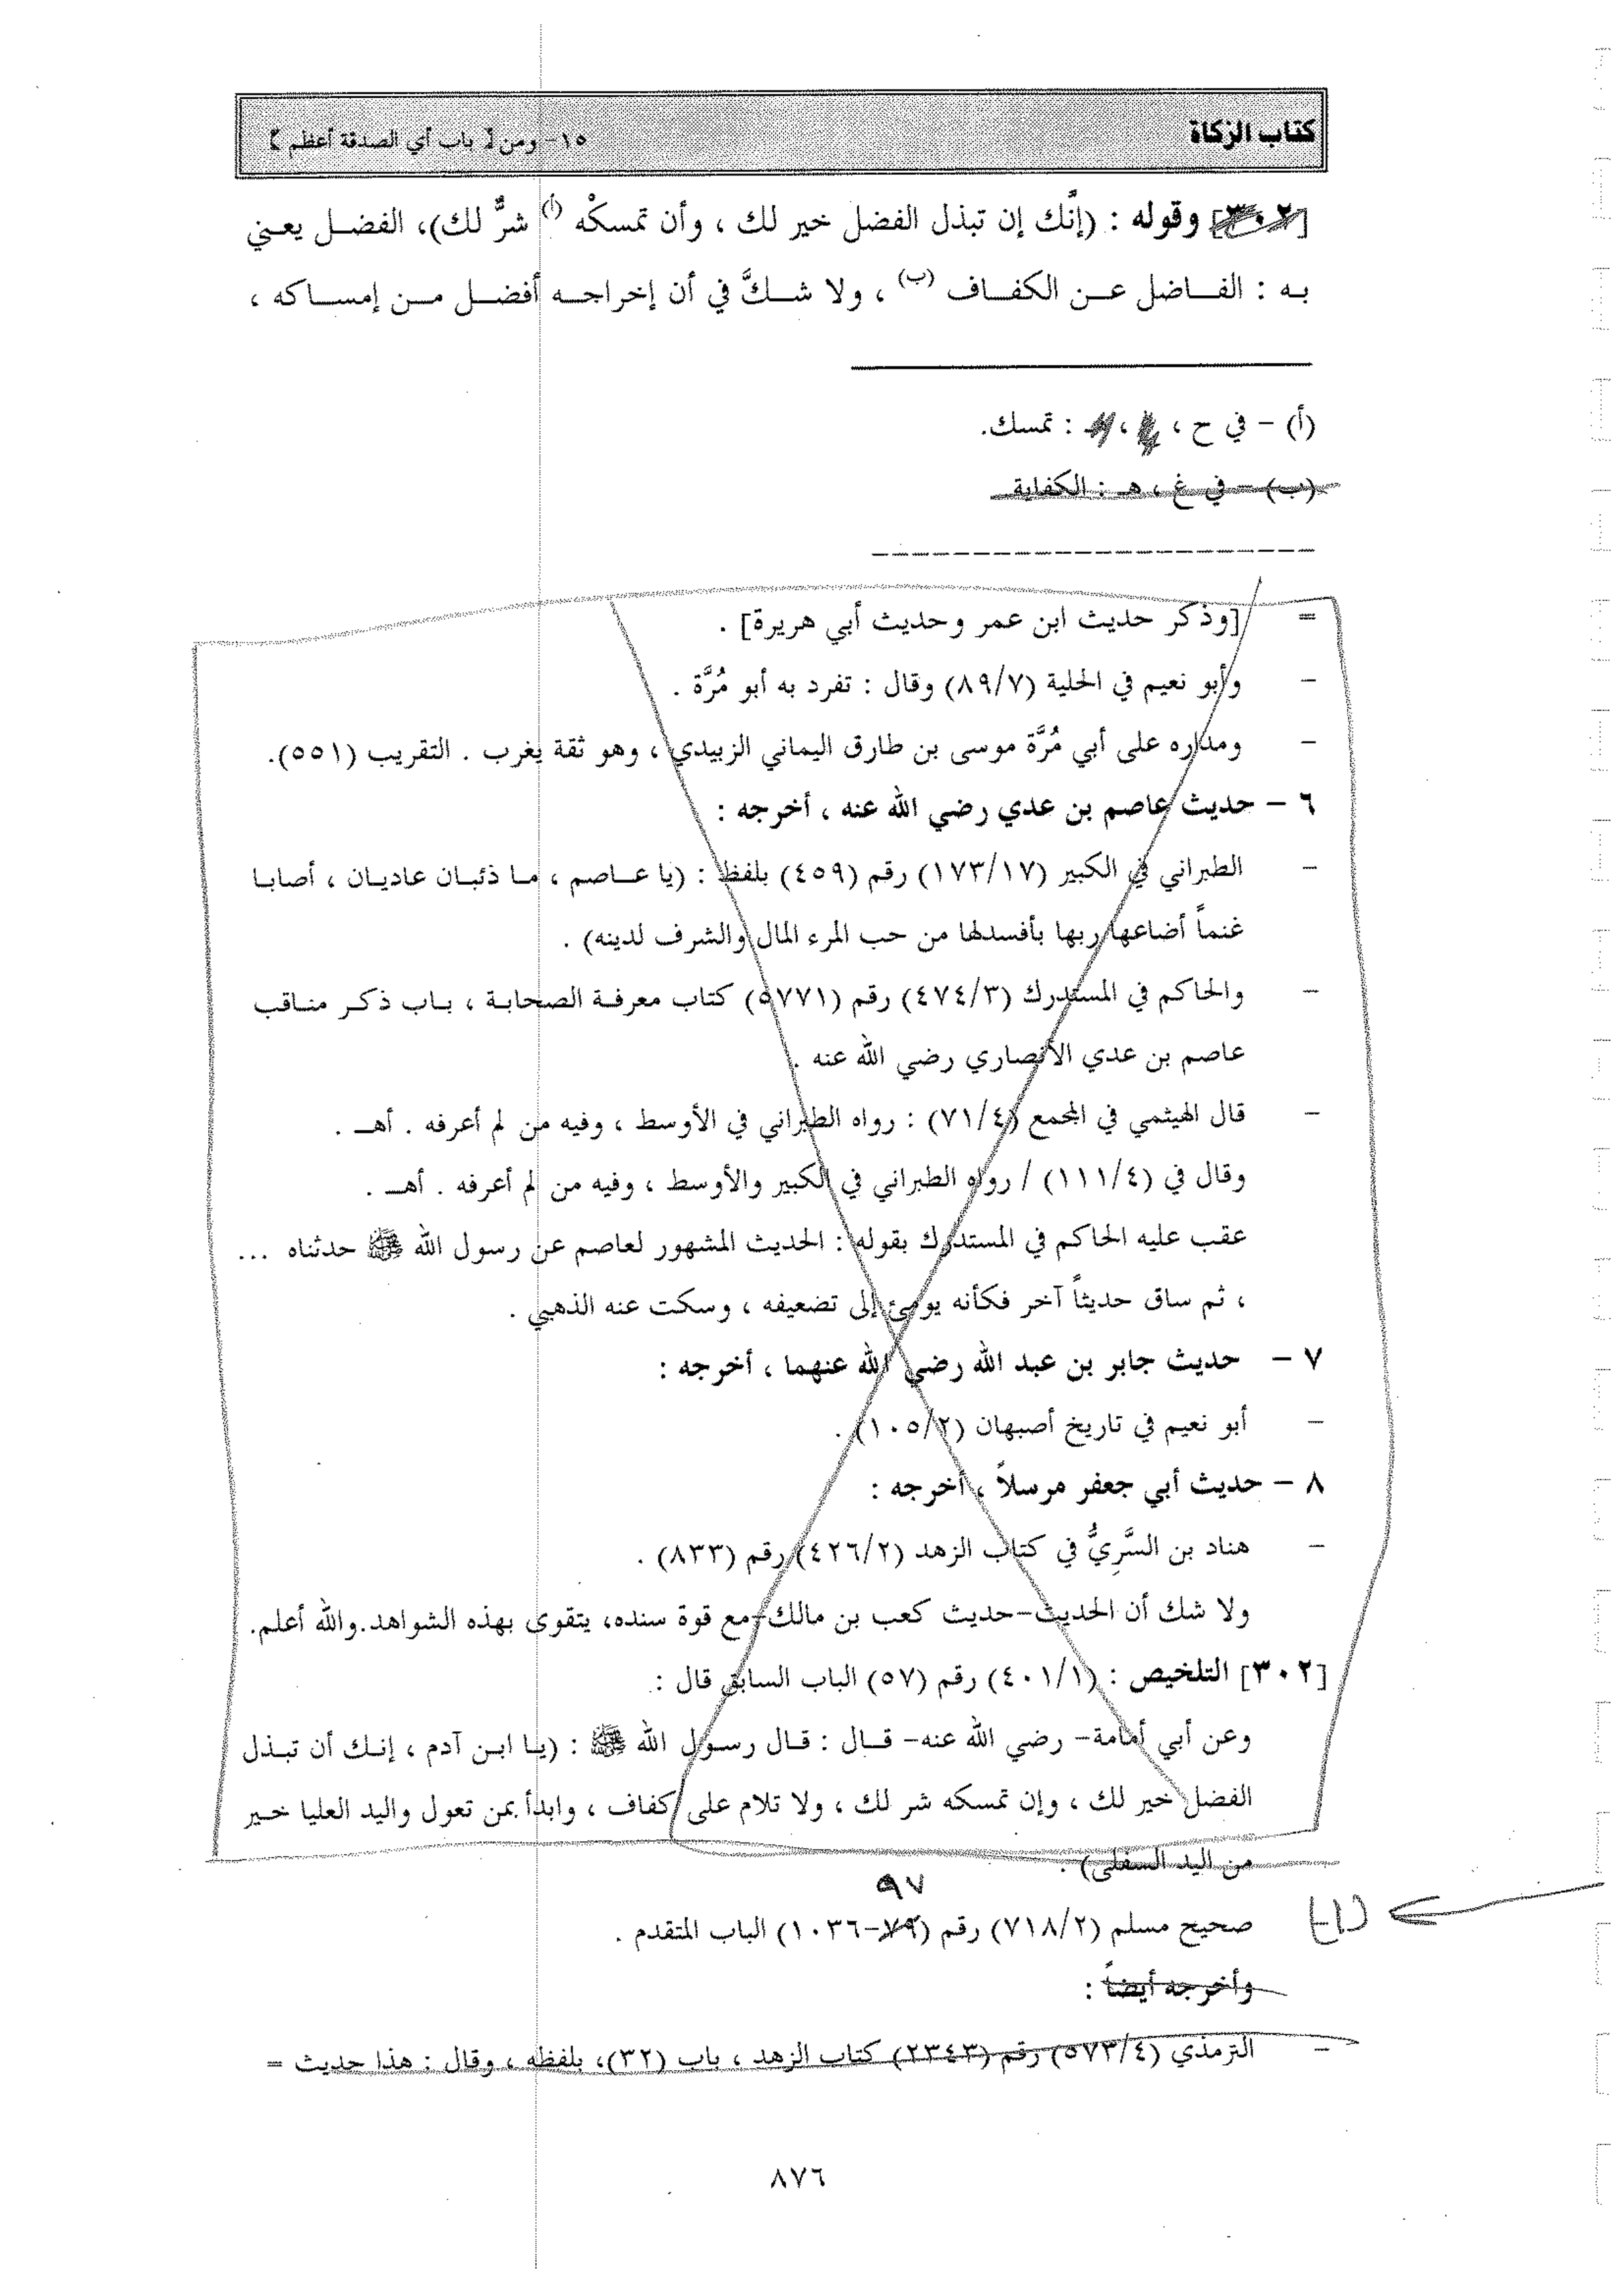 كتاب الزكاة
١٥- ومن [ باب أي الصدقة أعظم ]
[٣٠٢] وقوله : (إنَّك إن تبذل الفضل خير لك ، وأن تمسكْه (أ) شرٌّ لك)، الفضل يعني
به : الفاضل عن الكفاف (ب) ، ولا شكَّ في أن إخراجه أفضل من إمساكه ،
(أ) – في ح ، : تمسك.
(ب) – في غ ، هـ : الكفاية
= [وذكر حديث ابن عمر وحديث أبي هريرة] .
– وأبو نعيم في الحلية (٨٩/٧) وقال : تفرد به أبو مُرَّة .
– ومداره على أبي مُرَّة موسى بن طارق اليماني الزبيدي ، وهو ثقة يغرب . التقريب (٥٥١).
٦ – حديث عاصم بن عدي رضي الله عنه ، أخرجه :
– الطبراني في الكبير (١٧٣/١٧) رقم (٤٥٩) بلفظ : (يا عاصم ، ما ذئبان عاديان ، أصابا
غنماً أضاعها ربها بأفسد لها من حب المرء المال والشرف لدينه) .
– والحاكم في المستدرك (٤٧٤/٣) رقم (٥٧٧١) كتاب معرفة الصحابة ، باب ذكر مناقب
عاصم بن عدي الأنصاري رضي الله عنه .
– قال الهيثمي في المجمع (٧١/٤) : رواه الطبراني في الأوسط ، وفيه من لم أعرفه . أهـ .
وقال في (١١١/٤) / رواه الطبراني في الكبير والأوسط ، وفيه من لم أعرفه . أهـ .
عقب عليه الحاكم في المستدرك بقوله : الحديث المشهور لعاصم عن رسول الله ﷺ حدثناه ...
، ثم ساق حديثاً آخر فكأنه يومئ إلى تضعيفه ، وسكت عنه الذهبي .
٧ – حديث جابر بن عبد الله رضي الله عنهما ، أخرجه :
– أبو نعيم في تاريخ أصبهان (١٠٥/٢) .
٨ – حديث أبي جعفر مرسلاً ، أخرجه :
– هناد بن السَّرِيُّ في كتاب الزهد (٤٢٦/٢) رقم (٨٣٣) .
ولا شك أن الحديث–حديث كعب بن مالك–مع قوة سنده، يتقوى بهذه الشواهد.والله أعلم.
[٣٠٢] التلخيص : (٤٠١/١) رقم (٥٧) الباب السابق قال :
وعن أبي أمامة– رضي الله عنه– قال : قال رسول الله ﷺ : (يا ابن آدم ، إنك أن تبذل
الفضل خير لك ، وإن تمسكه شر لك ، ولا تلام على كفاف ، وابدأ بمن تعول واليد العليا خير
من اليد السفلى) .
٩٧
(١) صحيح مسلم (٧١٨/٢) رقم (٧٩–١٠٣٦) الباب المتقدم .
وأخرجه أيضاً :
– الترمذي (٥٧٣/٤) رقم (٢٣٤٣) كتاب الزهد ، باب (٣٢)، بلفظه ، وقال : هذا حديث =
٨٧٦